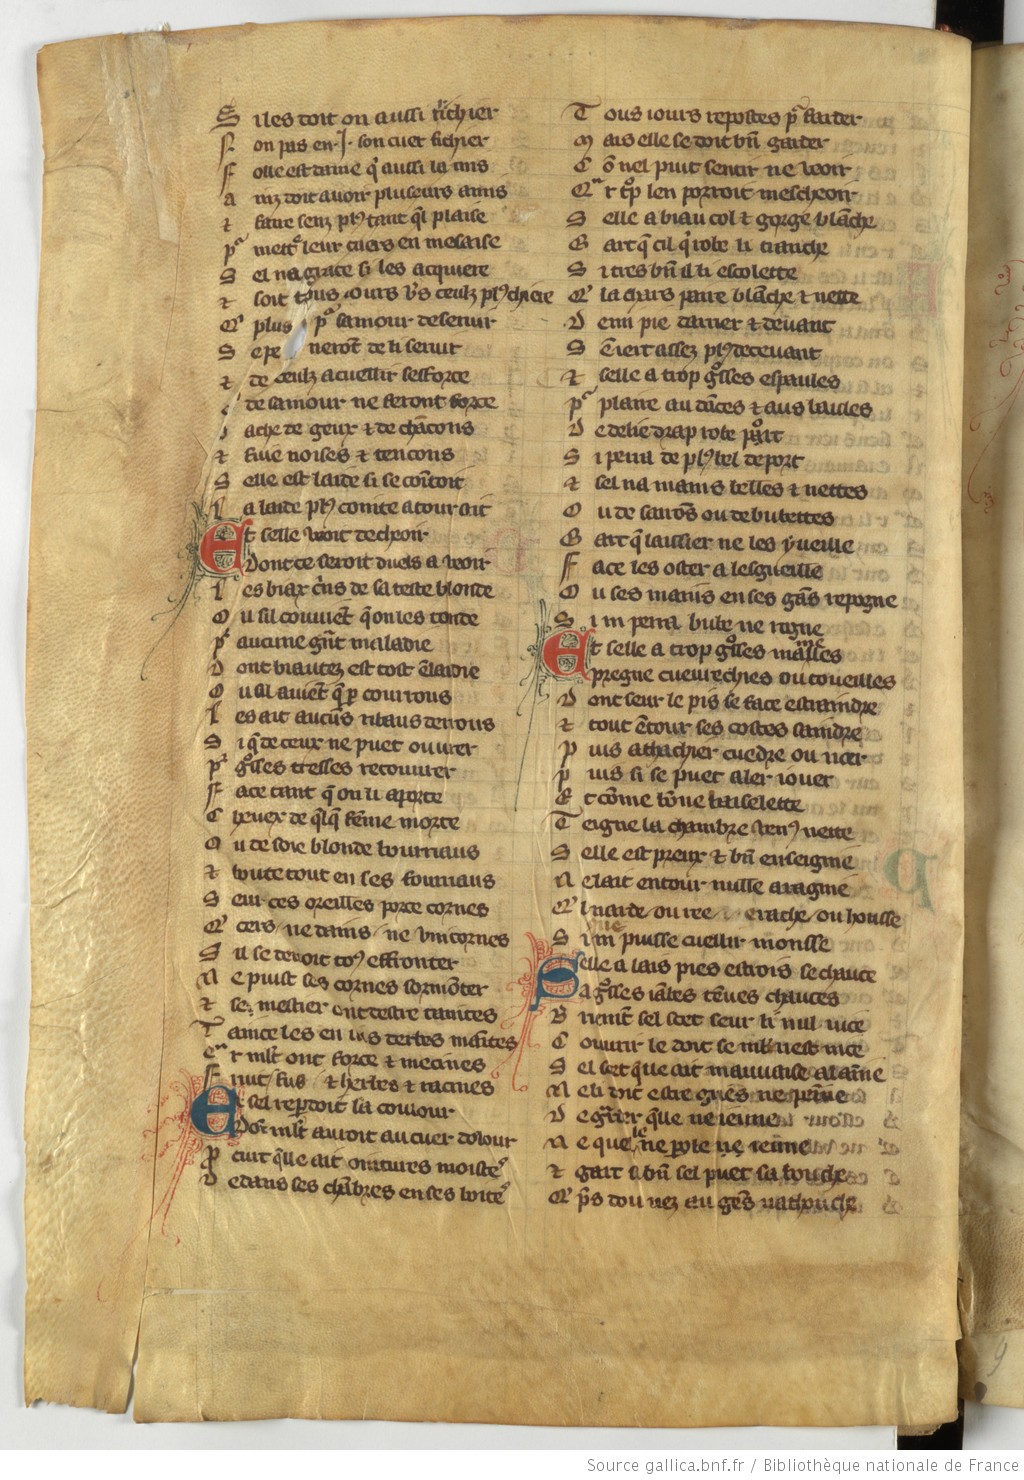 S i les doit on aussi fichier
F on pas en .j. son cuer fichier
F olle est dame q̓ aussi la mis
A inz doit avoir pluseurs amis
⁊ faire senz pl9 tant q̓l plaise
pͣ mettͤ leur cuers en mesaise
S el na grace si les acquiere
⁊ soit tous iours v̓s ceulz pl9 chiere
Qͬ plus pͣ samour deseruir
S e pe neront de li seruir
⁊ de ceulz acuellir sefforce
de samour ne feront force
ache de geux ⁊ de chācons
⁊ fuie noises ⁊ tencons
S elle est laide si se cointoit
L a laide pl9 cointe atour ait
Et selle veoit decheoir
Dont ce seroit duels a veoir
L es biax crīs de sa teste blonde
O u sil couuiēt q̄ on les tonde
pͬ aucune gn̄t maladie
D ont biautez est tost ēlaidie
O u sil auiēt q̄ p̲ courrous
L es ait aucūs ribaus derrous
S i q̄ de ceux ne puet ouurer
pͬ gͦsses tresses recouurer
F ace tant q̄ on li aporte
C heuex de q̄lq̄ feme morte
O u de soie blonde bourriaus
⁊ boute tout en ses fourriaus
S eur ces oreilles porce cornes
Qͬ cers ne dains ne vnicornes
S il se deuoit to9 effronter
N e puist ses cornes sormōter
⁊ se mestier ont destre taintes
T aingne les en ius derbes maītes
Cͬ mlt ont force ⁊ mecines
F ruit fus ⁊ herbes ⁊ racines
Et sel reperdoit sa coulour
Dōt mlt auroit au cuer dolour
P cuit q̄le ait ointures moiste
D edans ses chābres en ses boite
T ous iours repostes pͬ farder
M ais elle se doit bn̄ garder
C ō nel puit sentir ne veoir
Qͬ tͬ tͦp len porroit mescheoir
S elle a biau col ⁊ gorge blāche
G art q̄ cil q̓ robe li tranche
S i tres bn̄ li li escolette
Qͬ la chars paire blāche ⁊ nette
D emi pie darrier ⁊ deuant
S ēiert assez pl9 deceuant
⁊ selle a trop gͦsses espaules
pͬ plaire au dāces ⁊ aus baules
D e delie drap robe port
S i perra de pl9 bel deport
⁊ sel na mains belles ⁊ nettes
O u de sarōs ou de bubettes
G art q̄ laissier ne les y vueille
F ace les oster a lesgueille
O u ses mains en ses gās repogne
S i ni perra bube ne rogne
Et selle a trop gͦsses mālles
pregne cueurechies ou toueilles
D ont seur le pis se face estraindre
⁊ tout ētour ses costes saindre
P uis atachier cuedre ou noer
P uis si se puet aler iouer
Et cōme bōne baiselette
T eigne la chambre ven9 nette
S elle est preux ⁊ bn̄ enseigniee
N e lait entour nulle aragnie
Qͬ l narde ou ree erache ou housse
S i ni puisse cuellir mousse
Selle a lais pies estrois se chauce
a gͦsses iābes tēues chauces
B riemt̄ sel scet seur li nul vice
C ouurir le doit se mlt nest nice
S el set que ait mauuaise alaine
N e li doit estre griés ne peine
D e garder que ne ieune
N e quele ne pole ne ieune
⁊ gart li bn̄ sel puet sa bouche
Qͬ pres dou nez au gēs natouche